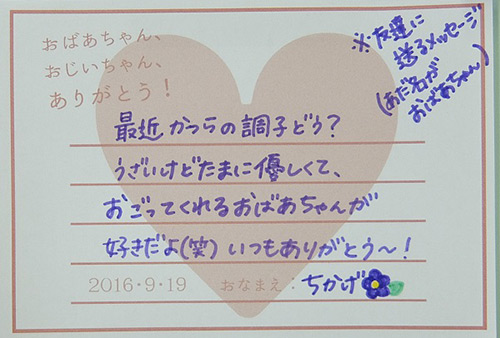 おばあちゃん、
おじいちゃん、
ありがとう！
※友達に
送るメッセージ
(あだ名が
おばあちゃん)
最近かつらの調子どう?
うざいけどたまに優しくて、
おごってくれるおばあちゃんが
好きだよ(笑)いつもありがとう〜!
2016・9・19 おなまえ：ちかげ